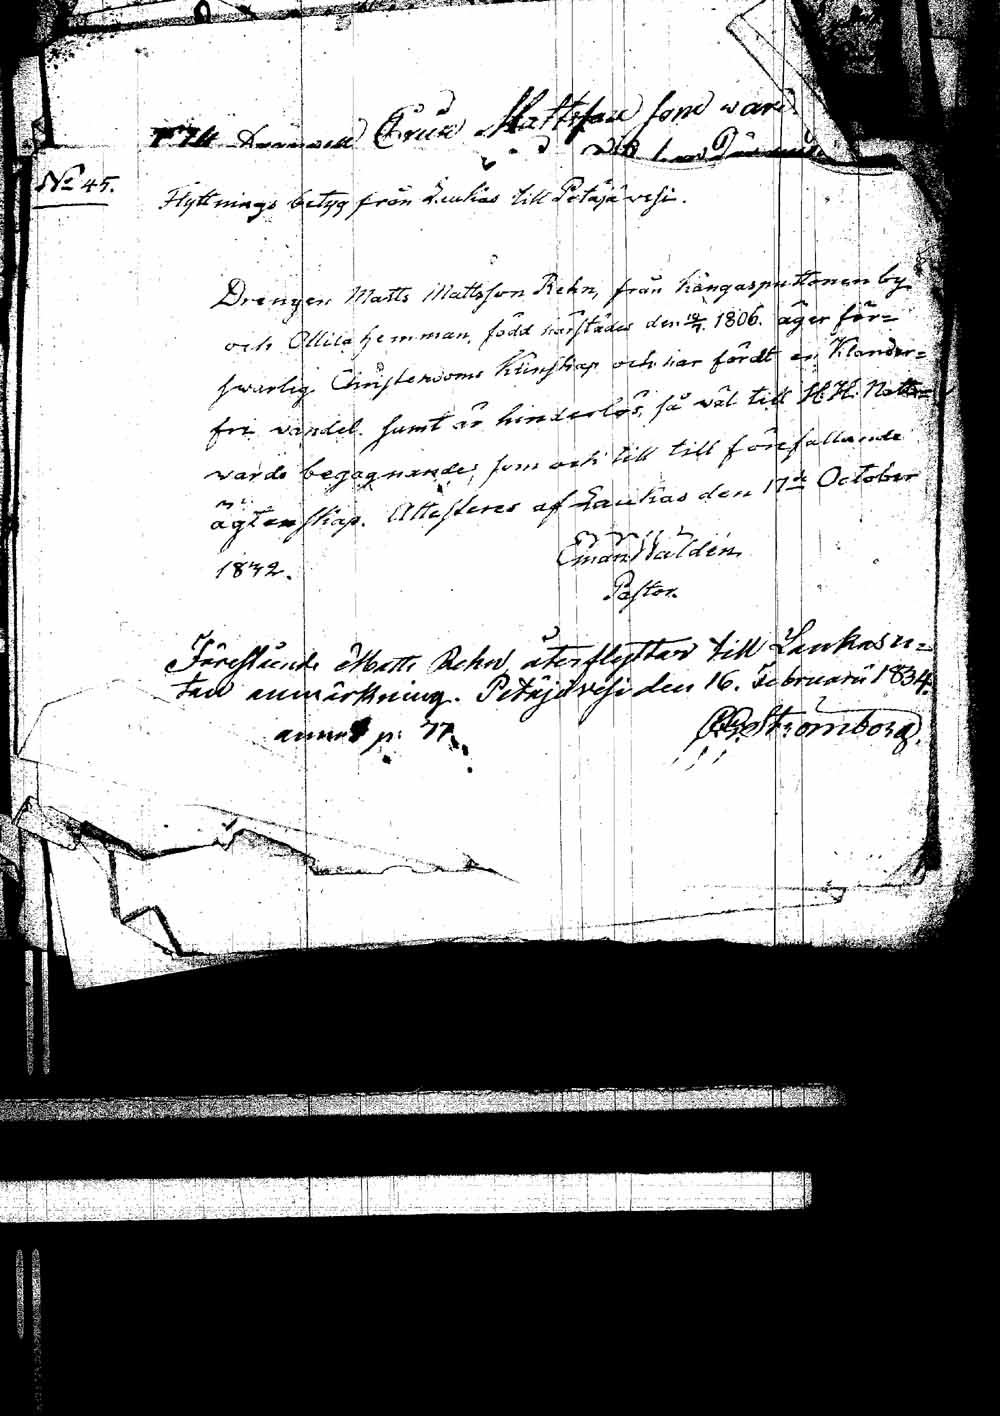 Mattsson som varit
No 45.
Flyttnings betyg från Laukas till Petäjävesi.
Drengen Matts Mattsson Rehn, från Kångasputtonen by
och Ollila hemman, född härstädes den 1806. äger för=
swarlig Christendoms Kunskap och har fördt en Klander=
fri vandel. samt är hinderlös, så väl till H. H. Natt=
vards begagnande, som och till till förefallande
ägtenskap. Attesteres af Laukas den 17de October
1832.
Eman Waldén
Pastor.
Förestående Matts Rehn, återflyttar till Laukas u=
tan anmärkning. Petäjävesi den 16. Februarii 1834.
Stromborg.
p. 77.